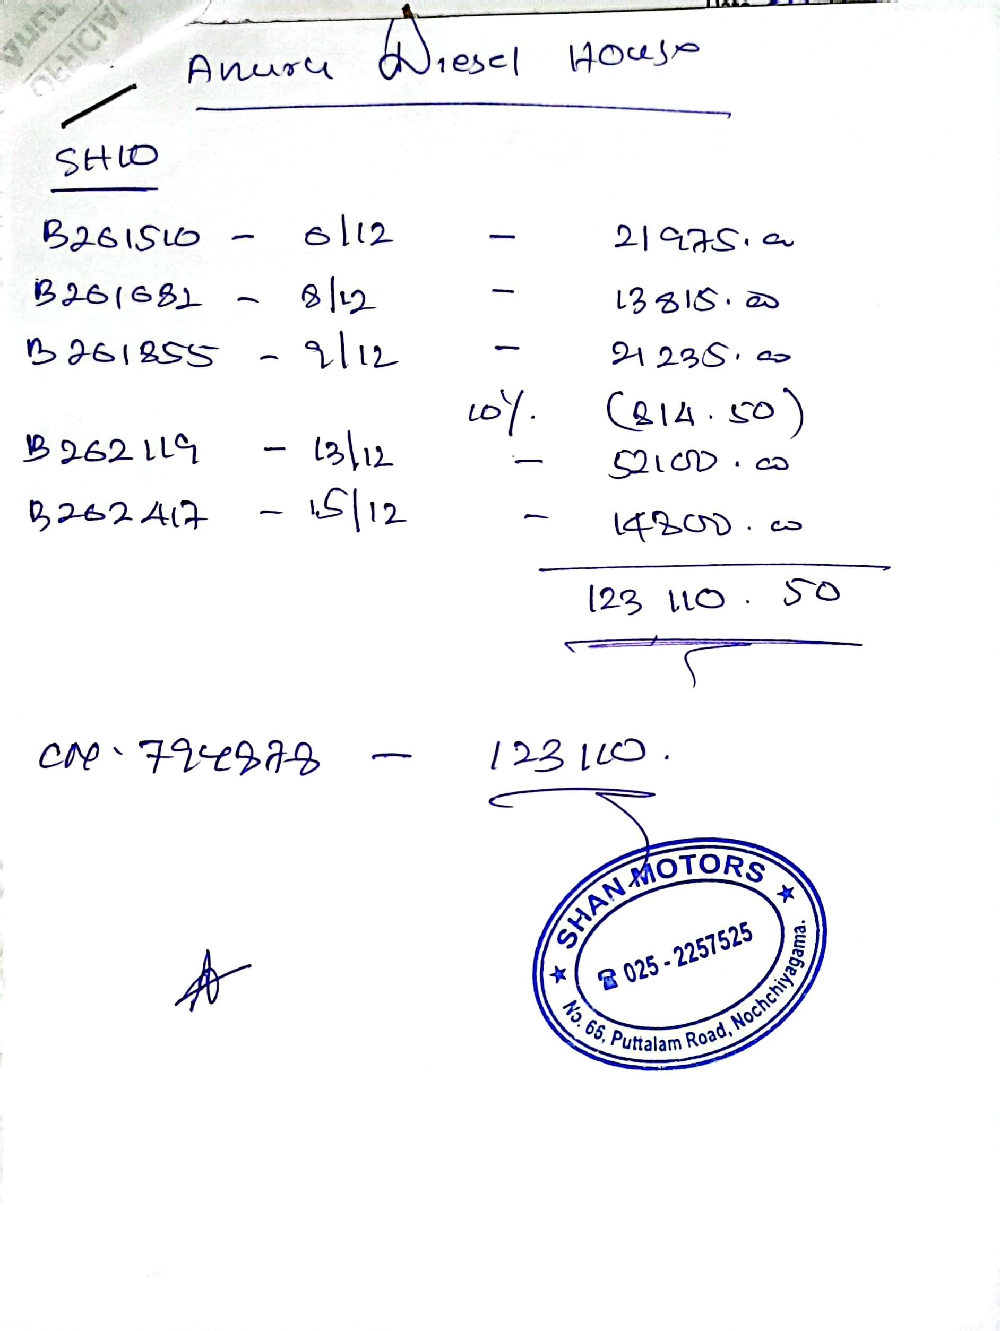 Anura Diesel House
SH10
B261510 - 6/12 - 21975.00
B261682 - 8/12 - 13815.00
B261855 - 9/12 - 21235.00
10%. (814.50)
B262119 - 13/12 - 52100.00
B262417 - 15/12 - 14800.00
123 110.50
794878 - 123110.
SHAN MOTORS
025 - 2257525
No. 65, Puttalam Road, Nochchiyagama.